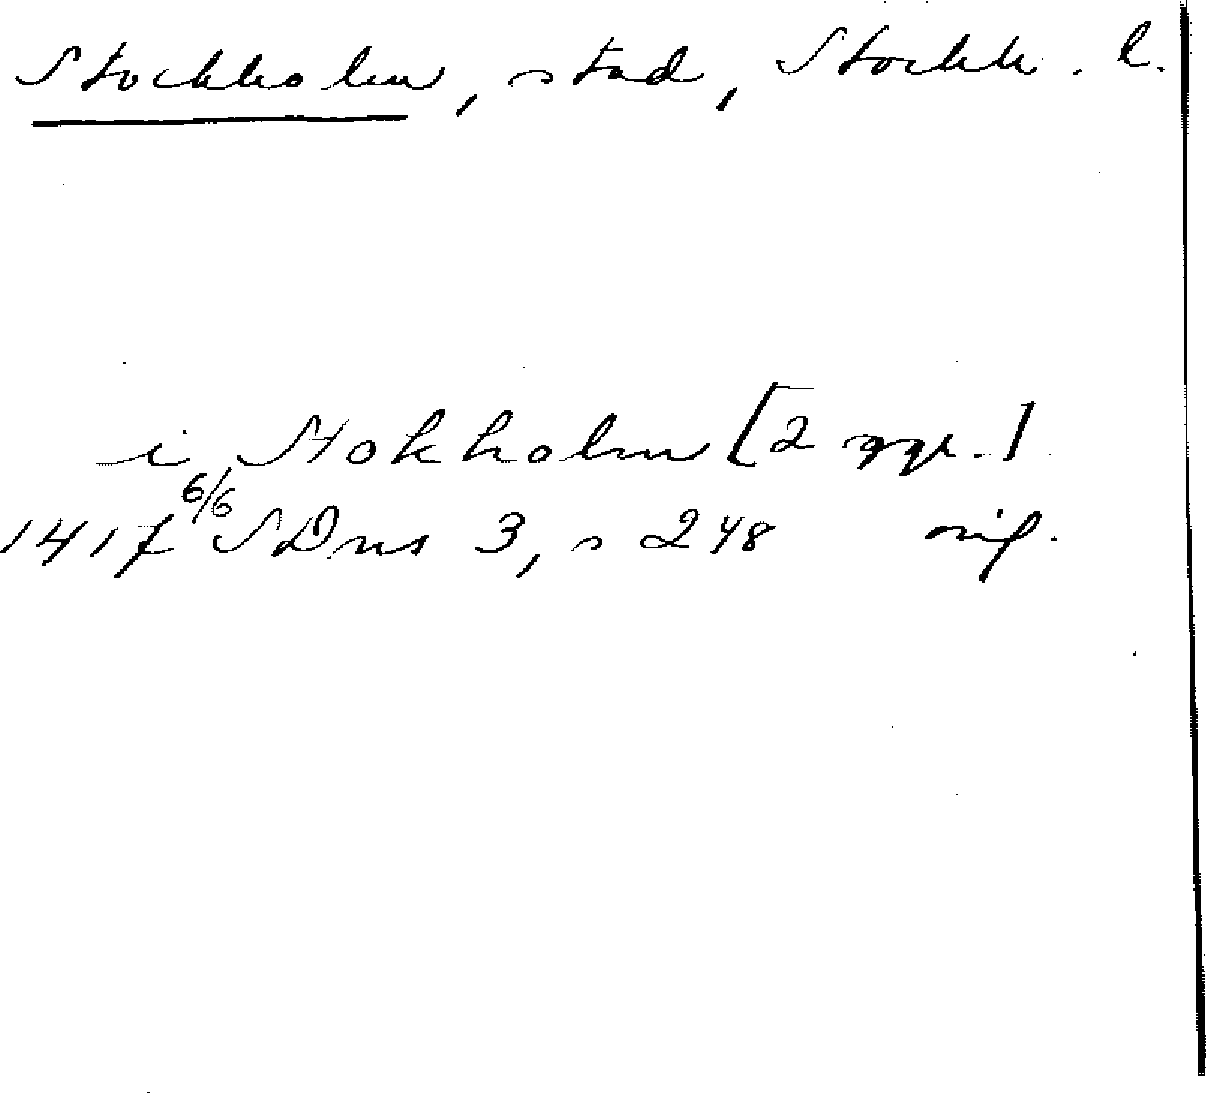 Stockholm, stad, Stockh. l.
i Stokholm [2 ggr.]
1417 6/6 SDns 3, s 248 orig.